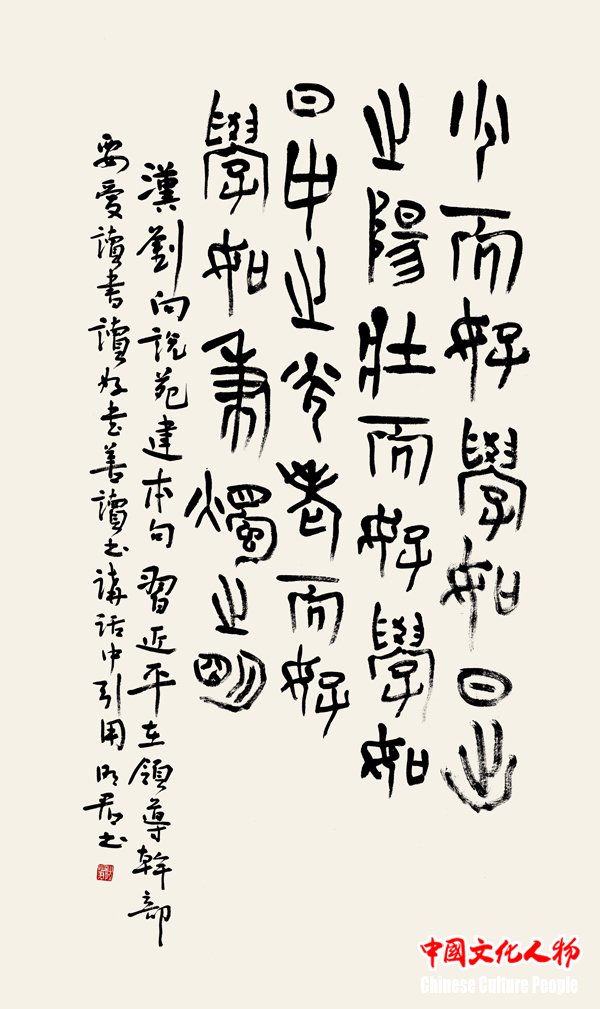 少而好學如日出
之陽壯而好學如
日中之光老而好
學如秉燭之明
漢劉向說苑建本句 習近平在領導幹部
要愛讀書讀好書善讀書講話中引用 書
中國文化人物
Chinese Culture People